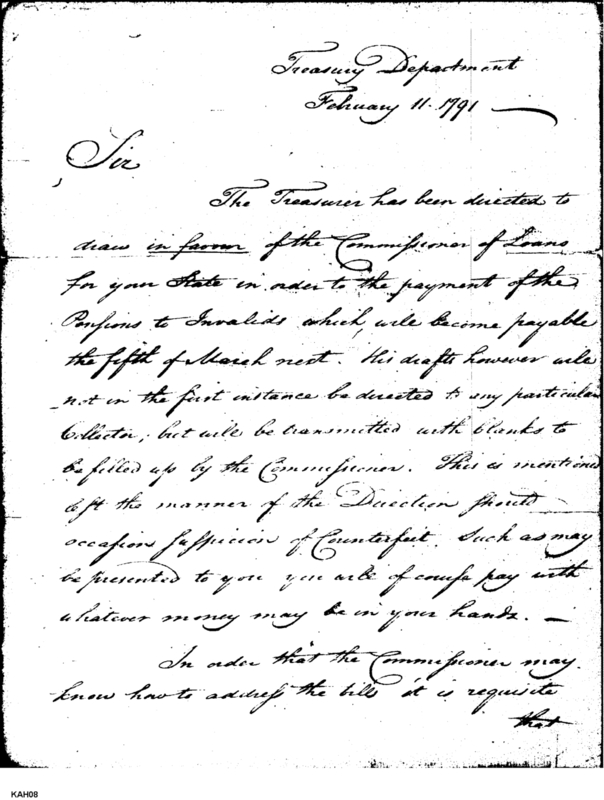 Treasury Department
February 11. 1791
Sir
The Treasurer has been directed to
draw in favour of the Commissioner of Loans
for your State in order to the payment of the
Pensions to Invalids which will become payable
the fifth of March next. His drafts however will
not in the first instance be directed to any particular
Collector, but will be transmitted with blanks to
be filled up by the Commissioner. This is mentioned
lest the manner of the Direction should
occasion suspicion of Counterfeit. Such as may
be presented to you you will of course pay with
whatever money may be in your hands. —
In order that the Commissioner may
know how to address the bills it is requisite
that
KAH08